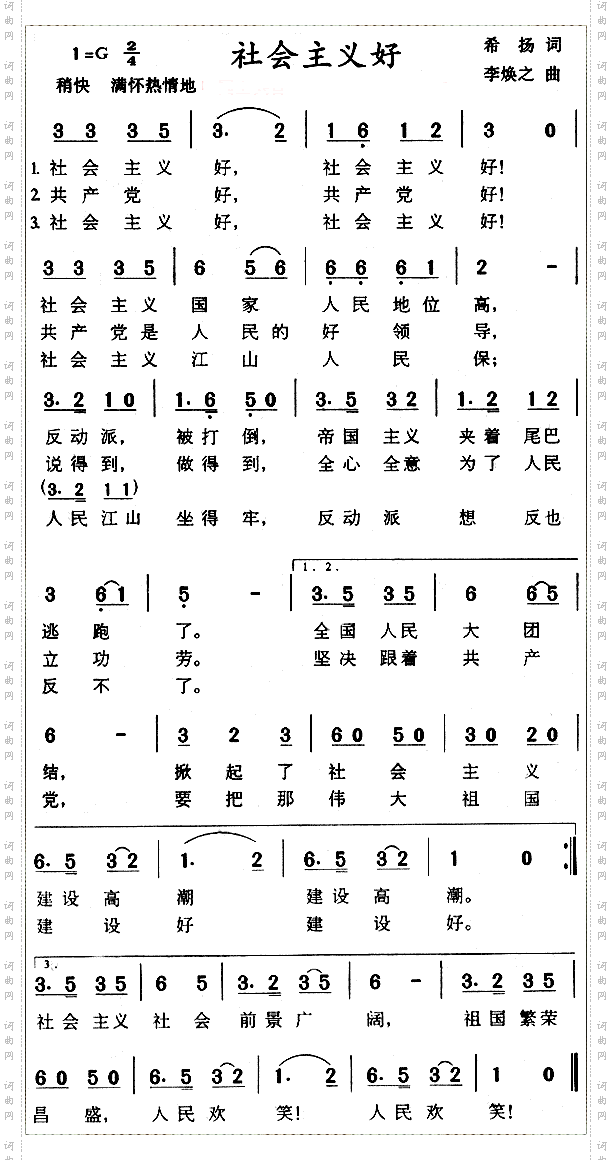 1=G 2/4
社会主义好
希扬 词
李焕之 曲
稍快 满怀热情地
3 3 3 5 | 3. 2 | 1 6 1 2 | 3 0 |
1. 社会主义好, 社会主义好!
2. 共产党好, 共产党好!
3. 社会主义好, 社会主义好!
3 3 3 5 | 6 5 6 | 6 6 6 1 | 2 - |
社会主义国家人民地位高,
共产党是人民的好领导,
社会主义江山人民保;
3. 2 1 0 | 1. 6 5 0 | 3. 5 3 2 | 1. 2 1 2 |
反动派, 被打倒, 帝国主义夹着尾巴
说得到, 做得到, 全心全意为了人民
(3. 2 1 1)
人民江山坐得牢, 反动派想反也
1. 2.
3 6 1 | 5 - | 3. 5 3 5 | 6 6 5 |
逃跑了。 全国人民大团
立功劳。 坚决跟着共产
反不了。
6 - | 3 2 3 | 6 0 5 0 | 3 0 2 0 |
结, 掀起了社会主义
党, 要把那伟大祖国
6. 5 3 2 | 1. 2 | 6. 5 3 2 | 1 0 :||
建设高潮 建设高潮。
建设好 建设好。
3.
3. 5 3 5 | 6 5 | 3. 2 3 5 | 6 - | 3. 2 3 5 |
社会主义社会前景广阔, 祖国繁荣
6 0 5 0 | 6. 5 3 2 | 1. 2 | 6. 5 3 2 | 1 0 ||
昌盛, 人民欢笑! 人民欢笑!
词曲网